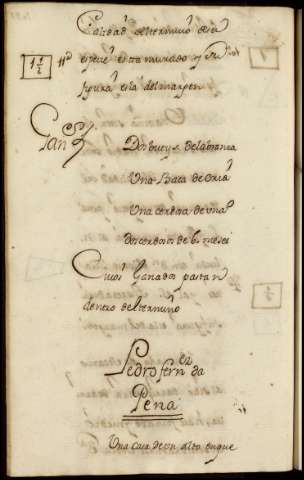 Calidad del termino de su
1 1/2
especie esta murado y su
figura es la del margen
Ganados
Dos bueys de labranza
Una Baca de cria
Una cerdora de una
dos cerdos de 6 meses
Cuios Ganados pastan
dentro del termino
Pedro Fernz da
Pena
Una casa de un alto en que